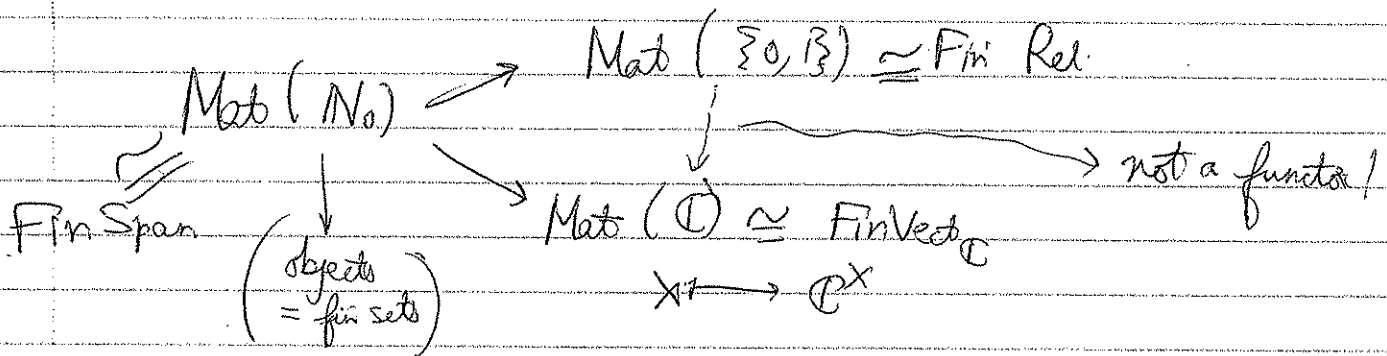 Mat ({0,1}) ≃ Fin Rel.
Mat (ℕ₀)
→ not a functor!
FinSpan
Mat (ℂ) ≃ FinVect_ℂ
(objects = fin sets)
X ↦ ℂ^X